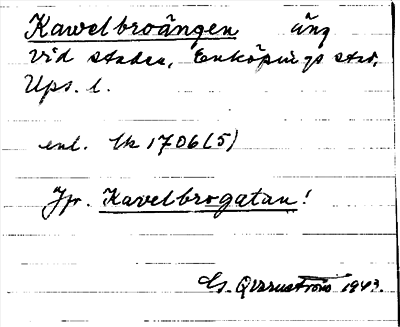 Kawelbroängen äng
vid staden, Enköpings stad,
Ups. l.
enl. lk 1706(5)
Jfr. Kavelbrogatan!
G. Qvarnström 1943.